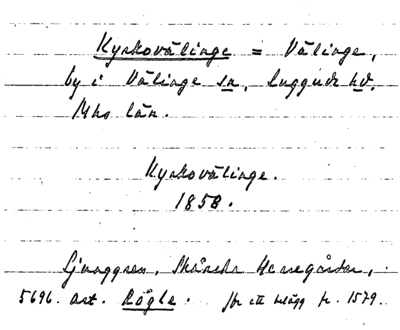 Kyrkovälinge = Välinge,
by i Välinge sn, Luggude hd,
Mhs län.
Kyrkovälinge.
1858.
Ljunggren, Skånska Herregårdar,
5696. art. Rögle. för ett belägg fr. 1579.